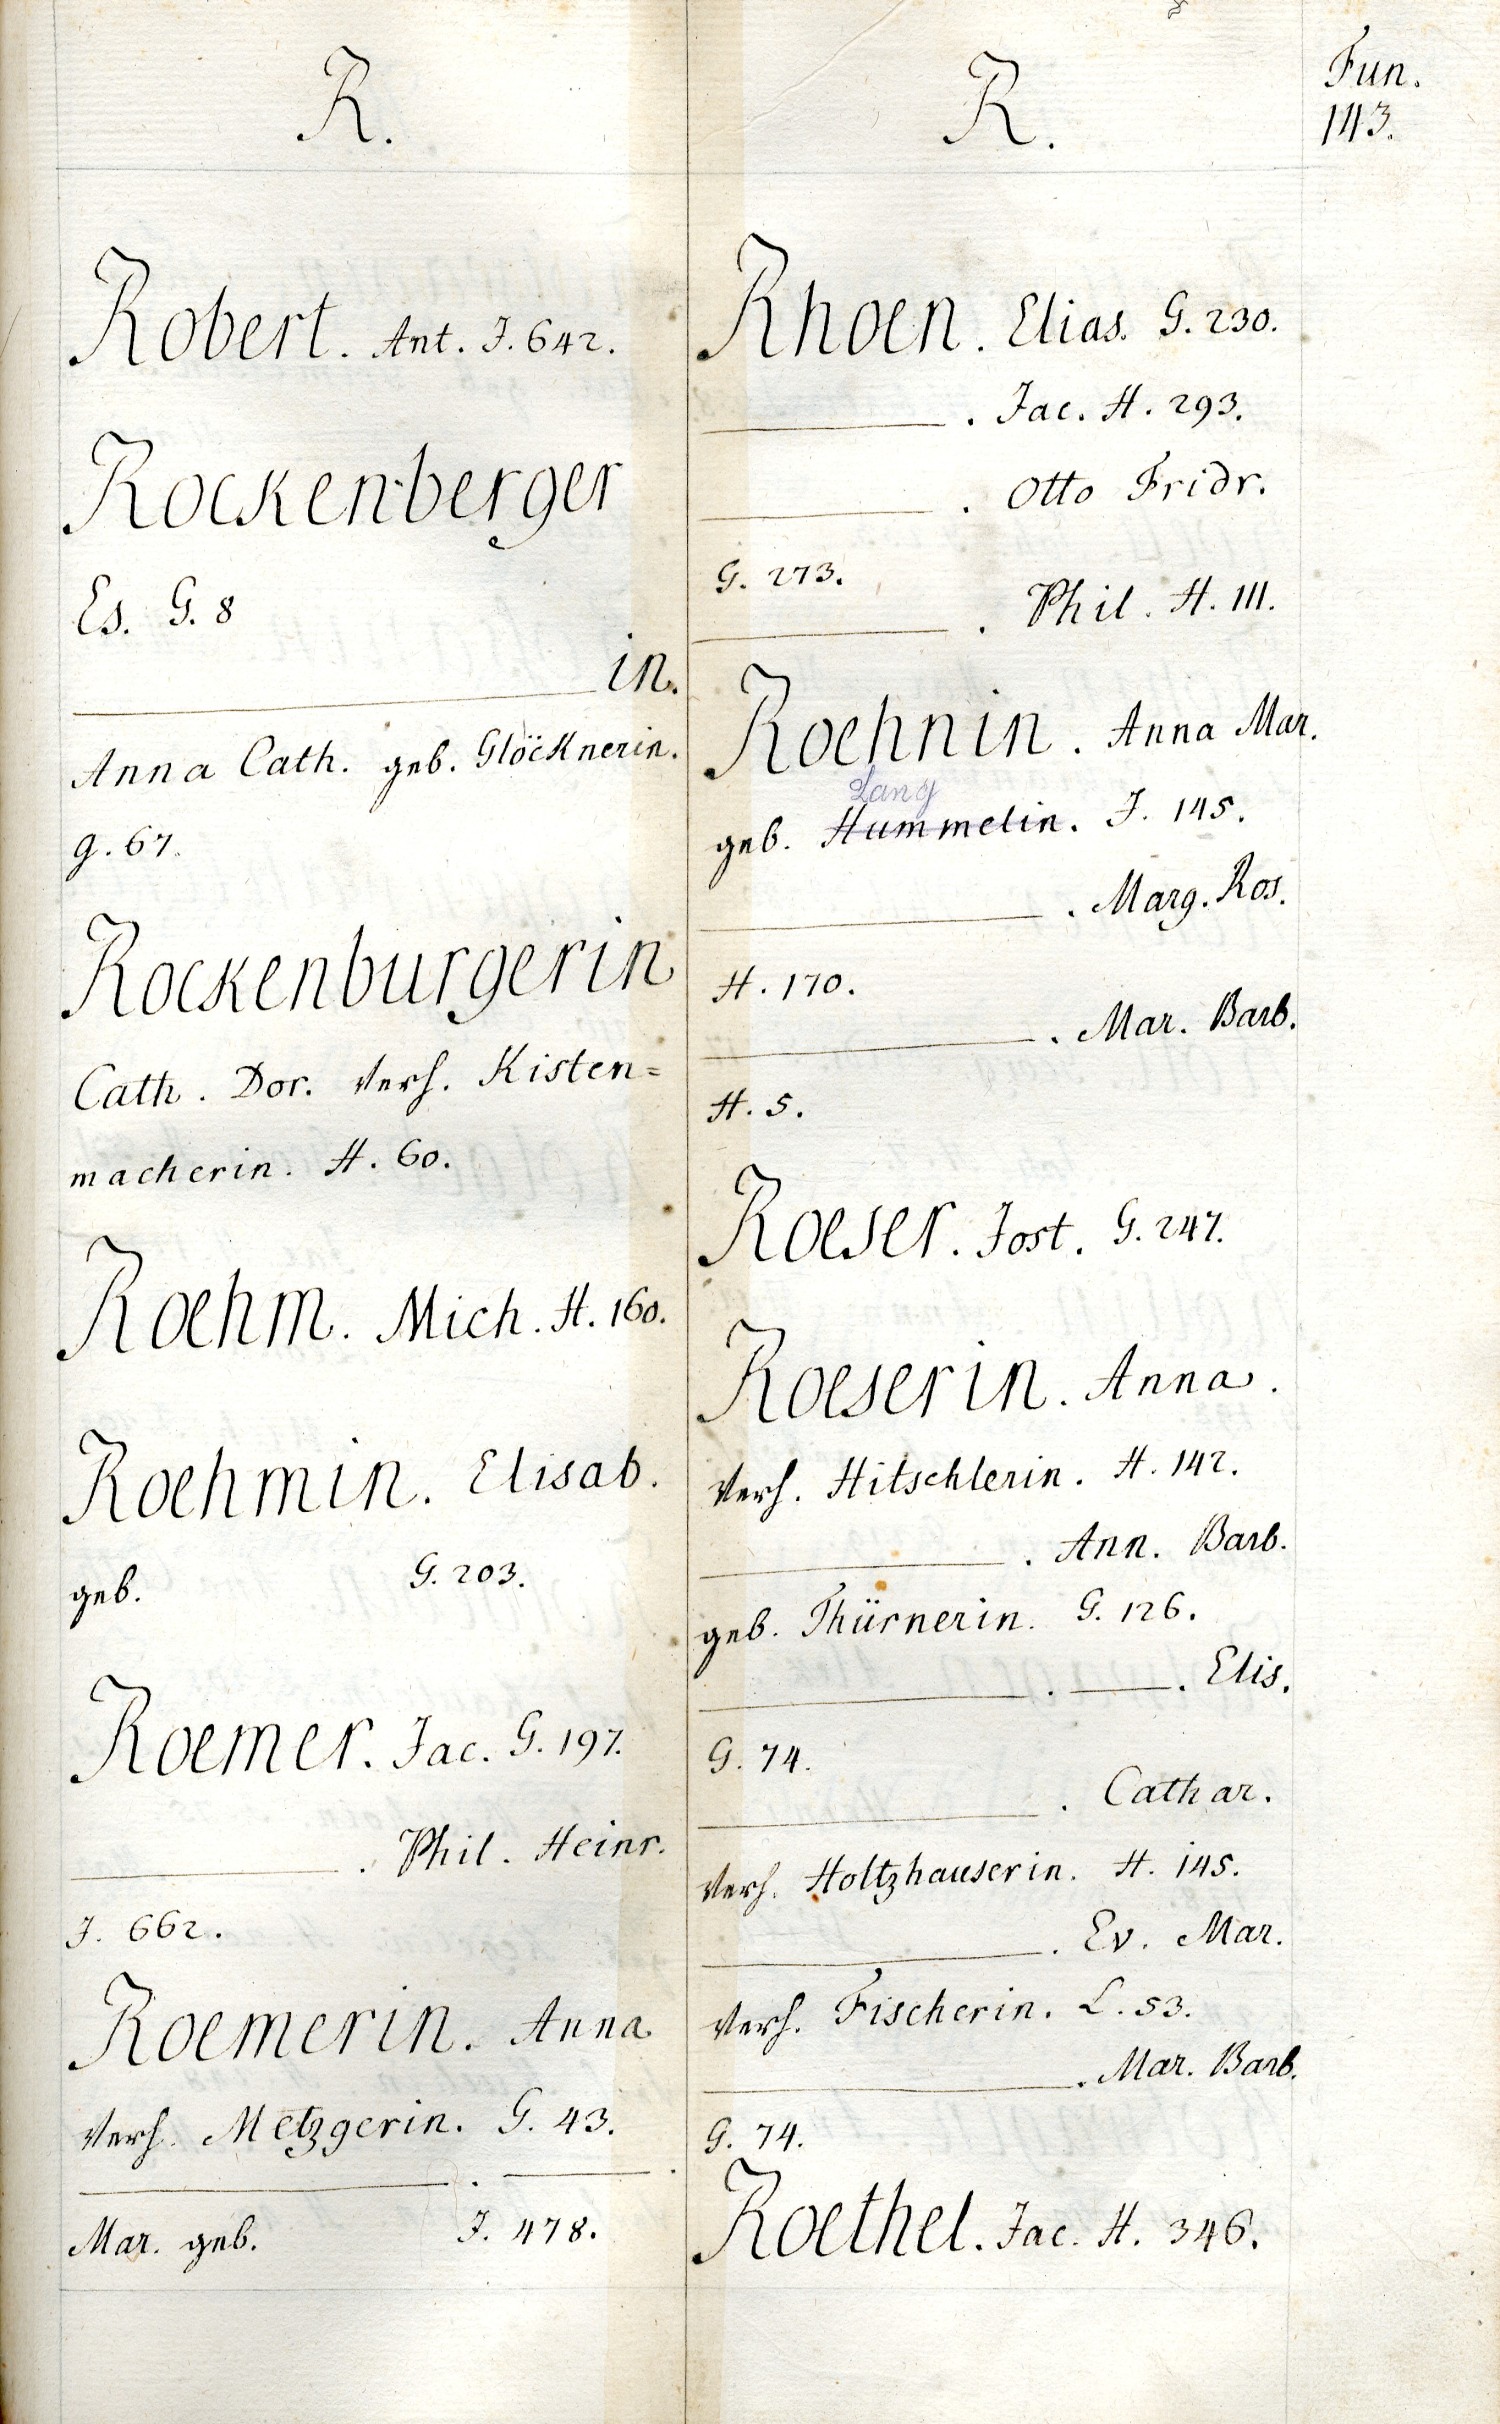 R.
Robert. Ant. J. 642.
Rockenberger
Es. G. 8
in.
Anna Cath. geb. Glöcknerin.
g. 67.
Rockenburgerin
Cath. Dor. verh. Kisten=
macherin. H. 60.
Roehm. Mich. H. 160.
Roehmin. Elisab.
geb. G. 203.
Roemer. Jac. G. 197.
. Phil. Heinr.
J. 662.
Roemerin. Anna
verh. Metzgerin. G. 43.
Mar. geb. J. 478.
R.
Rhoen. Elias. G. 230.
. Jac. H. 293.
. Otto Fridr.
G. 273.
. Phil. H. 111.
Roehnin. Anna Mar.
Lang
geb. Hummelin. J. 145.
. Marg. Ros.
H. 170.
. Mar. Barb.
H. 5.
Roeser. Jost. G. 247.
Roeserin. Anna.
verh. Hitschlerin. H. 142.
. Ann. Barb.
geb. Thürnerin. G. 126.
. Elis.
G. 74.
. Cathar.
verh. Holtzhauserin. H. 145.
. Ev. Mar.
verh. Fischerin. L. 53.
. Mar. Barb.
G. 74.
Roethel. Jac. H. 346.
Fun.
143.